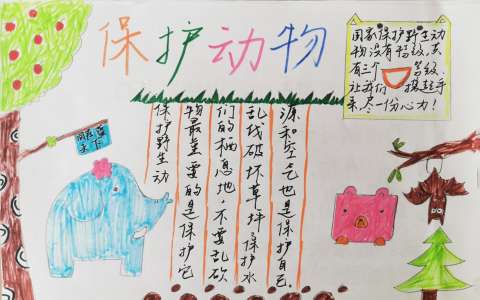 保护动物
国家保护野生动
物没有
有三个 等级.
让我们 携起手
来,尽一份心力!
保护野生动
物最重要的是保护它
们的栖息地,不要乱砍
乱伐破坏草坪,保护水
源和空气也是保护自己.